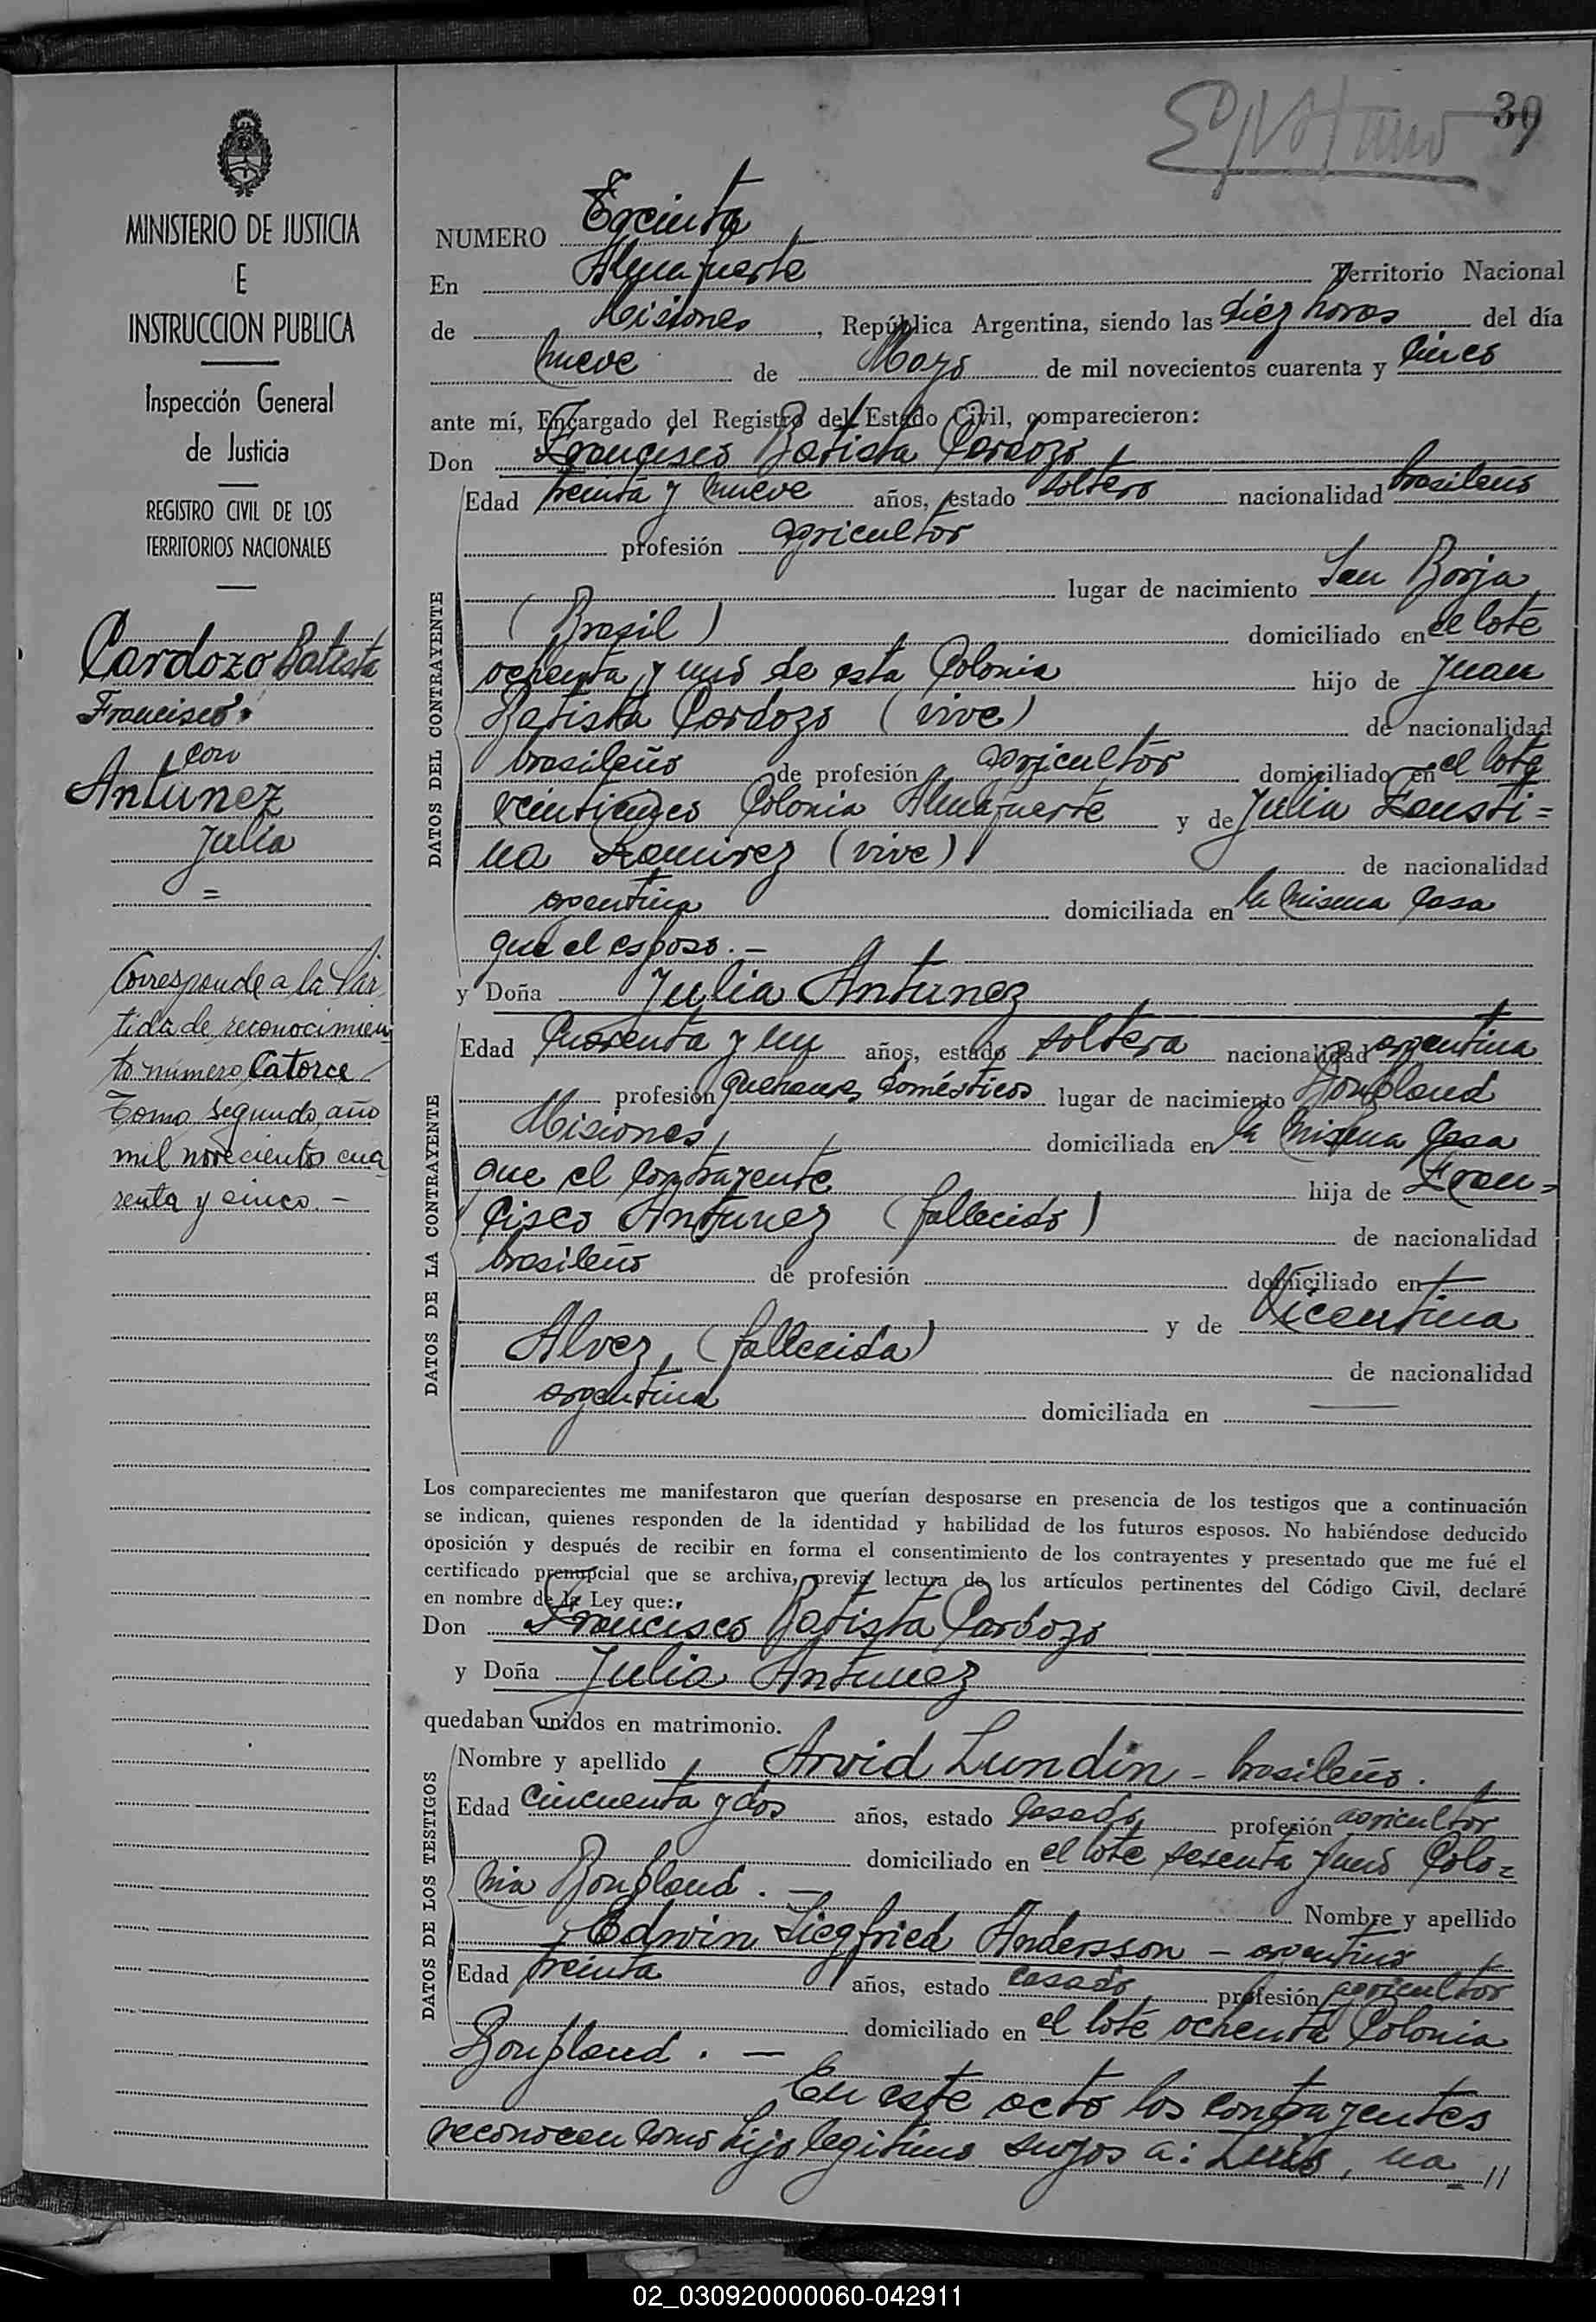 39
MINISTERIO DE JUSTICIA
E
INSTRUCCION PUBLICA
Inspección General
de Justicia
REGISTRO CIVIL DE LOS
TERRITORIOS NACIONALES
Cardozo Batista
Francisco
con
Antunez
Julia
=
Corresponde a la Par
tida de reconocimien
to número Catorce
Tomo segundo, año
mil novecientos cua
renta y cinco. -
NUMERO Treinta
En Almafuerte Territorio Nacional
de Misiones, República Argentina, siendo las diez horas del día
nueve de Mayo de mil novecientos cuarenta y cinco
ante mí, Encargado del Registro del Estado Civil, comparecieron:
Don Francisco Batista Cardozo
DATOS DEL CONTRAYENTE
Edad treinta y nueve años, estado soltero nacionalidad brasileño
profesión agricultor
lugar de nacimiento San Borja
(Brasil) domiciliado en el lote
ochenta y uno de esta Colonia hijo de Juan
Batista Cardozo (vive) de nacionalidad
brasileño de profesión agricultor domiciliado en el lote
Colonia Almafuerte y de Julia Fausti=
na Ramirez (vive) de nacionalidad
argentina domiciliada en la misma casa
que el esposo. -
y Doña Julia Antunez
DATOS DE LA CONTRAYENTE
Edad Cuarenta y un años, estado soltera nacionalidad argentina
profesión quehaceres domésticos lugar de nacimiento Bonpland
Misiones, domiciliada en la misma casa
que el contrayente hija de Fran=
cisco Antunez (fallecido) de nacionalidad
brasileño de profesión domiciliado en
y de Vicentina
Alvez, (fallecida) de nacionalidad
argentina domiciliada en
Los comparecientes me manifestaron que querían desposarse en presencia de los testigos que a continuación
se indican, quienes responden de la identidad y habilidad de los futuros esposos. No habiéndose deducido
oposición y después de recibir en forma el consentimiento de los contrayentes y presentado que me fué el
certificado prenupcial que se archiva, previa lectura de los artículos pertinentes del Código Civil, declaré
en nombre de la Ley que:
Don Francisco Batista Cardozo
y Doña Julia Antunez
quedaban unidos en matrimonio.
DATOS DE LOS TESTIGOS
Nombre y apellido Arvid Lundin - brasileño.
Edad cincuenta y dos años, estado casado, profesión agricultor
domiciliado en el lote sesenta y uno Colo=
nia Bonpland. - Nombre y apellido
Edwin Siegfried Andersson - argentino
Edad treinta años, estado casado, profesión agricultor
domiciliado en el lote ochenta Colonia
Bonpland. -
En este acto los contrayentes
reconocen como hijo legitimo suyos a: Luis, na //
02_030920000060-042911